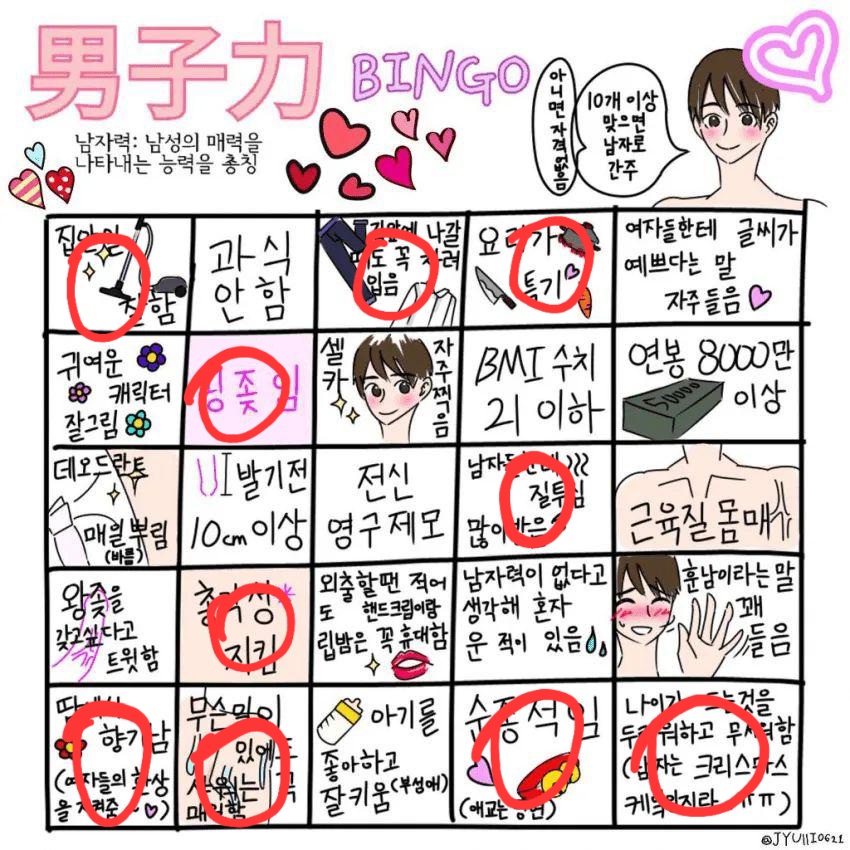 男子力 BINGO
남자력: 남성의 매력을
나타내는 능력을 총칭
10개 이상
맞으면
남자로
간주
아니면 자격없음
집안일
잘함
과식
안 함
집앞에 나갈
때도 꼭 차려
입음
요리가
특기
여자들한테 글씨가
예쁘다는 말
자주 들음
귀여운
캐릭터
잘그림
좆임
셀카
자주찍음
BMI 수치
21 이하
연봉 8000만
이상
50000
데오드란트
매일뿌림
(바름)
발기전
10cm 이상
전신
영구제모
남자들한테
질투심
많이받은
근육질 몸매
왕좆을
갖고싶다고
트윗함
총각성
지킴
외출할땐 적어
도 핸드크림이랑
립밤은 꼭 휴대함
남자력이 없다고
생각해 혼자
운 적이 있음
훈남이라는 말
꽤
들음
향기남
(여자들의 환상
을 지켜줌
무슨일이
있어도
샤워는 꼭
매일함
아기를
좋아하고
잘키움(부성애)
순종적임
(애교는 당연)
나이가 드는것을
두려워하고 무서워함
(남자는 크리스마스
케이크지라 ㅠㅠ)
@JYUIII0621